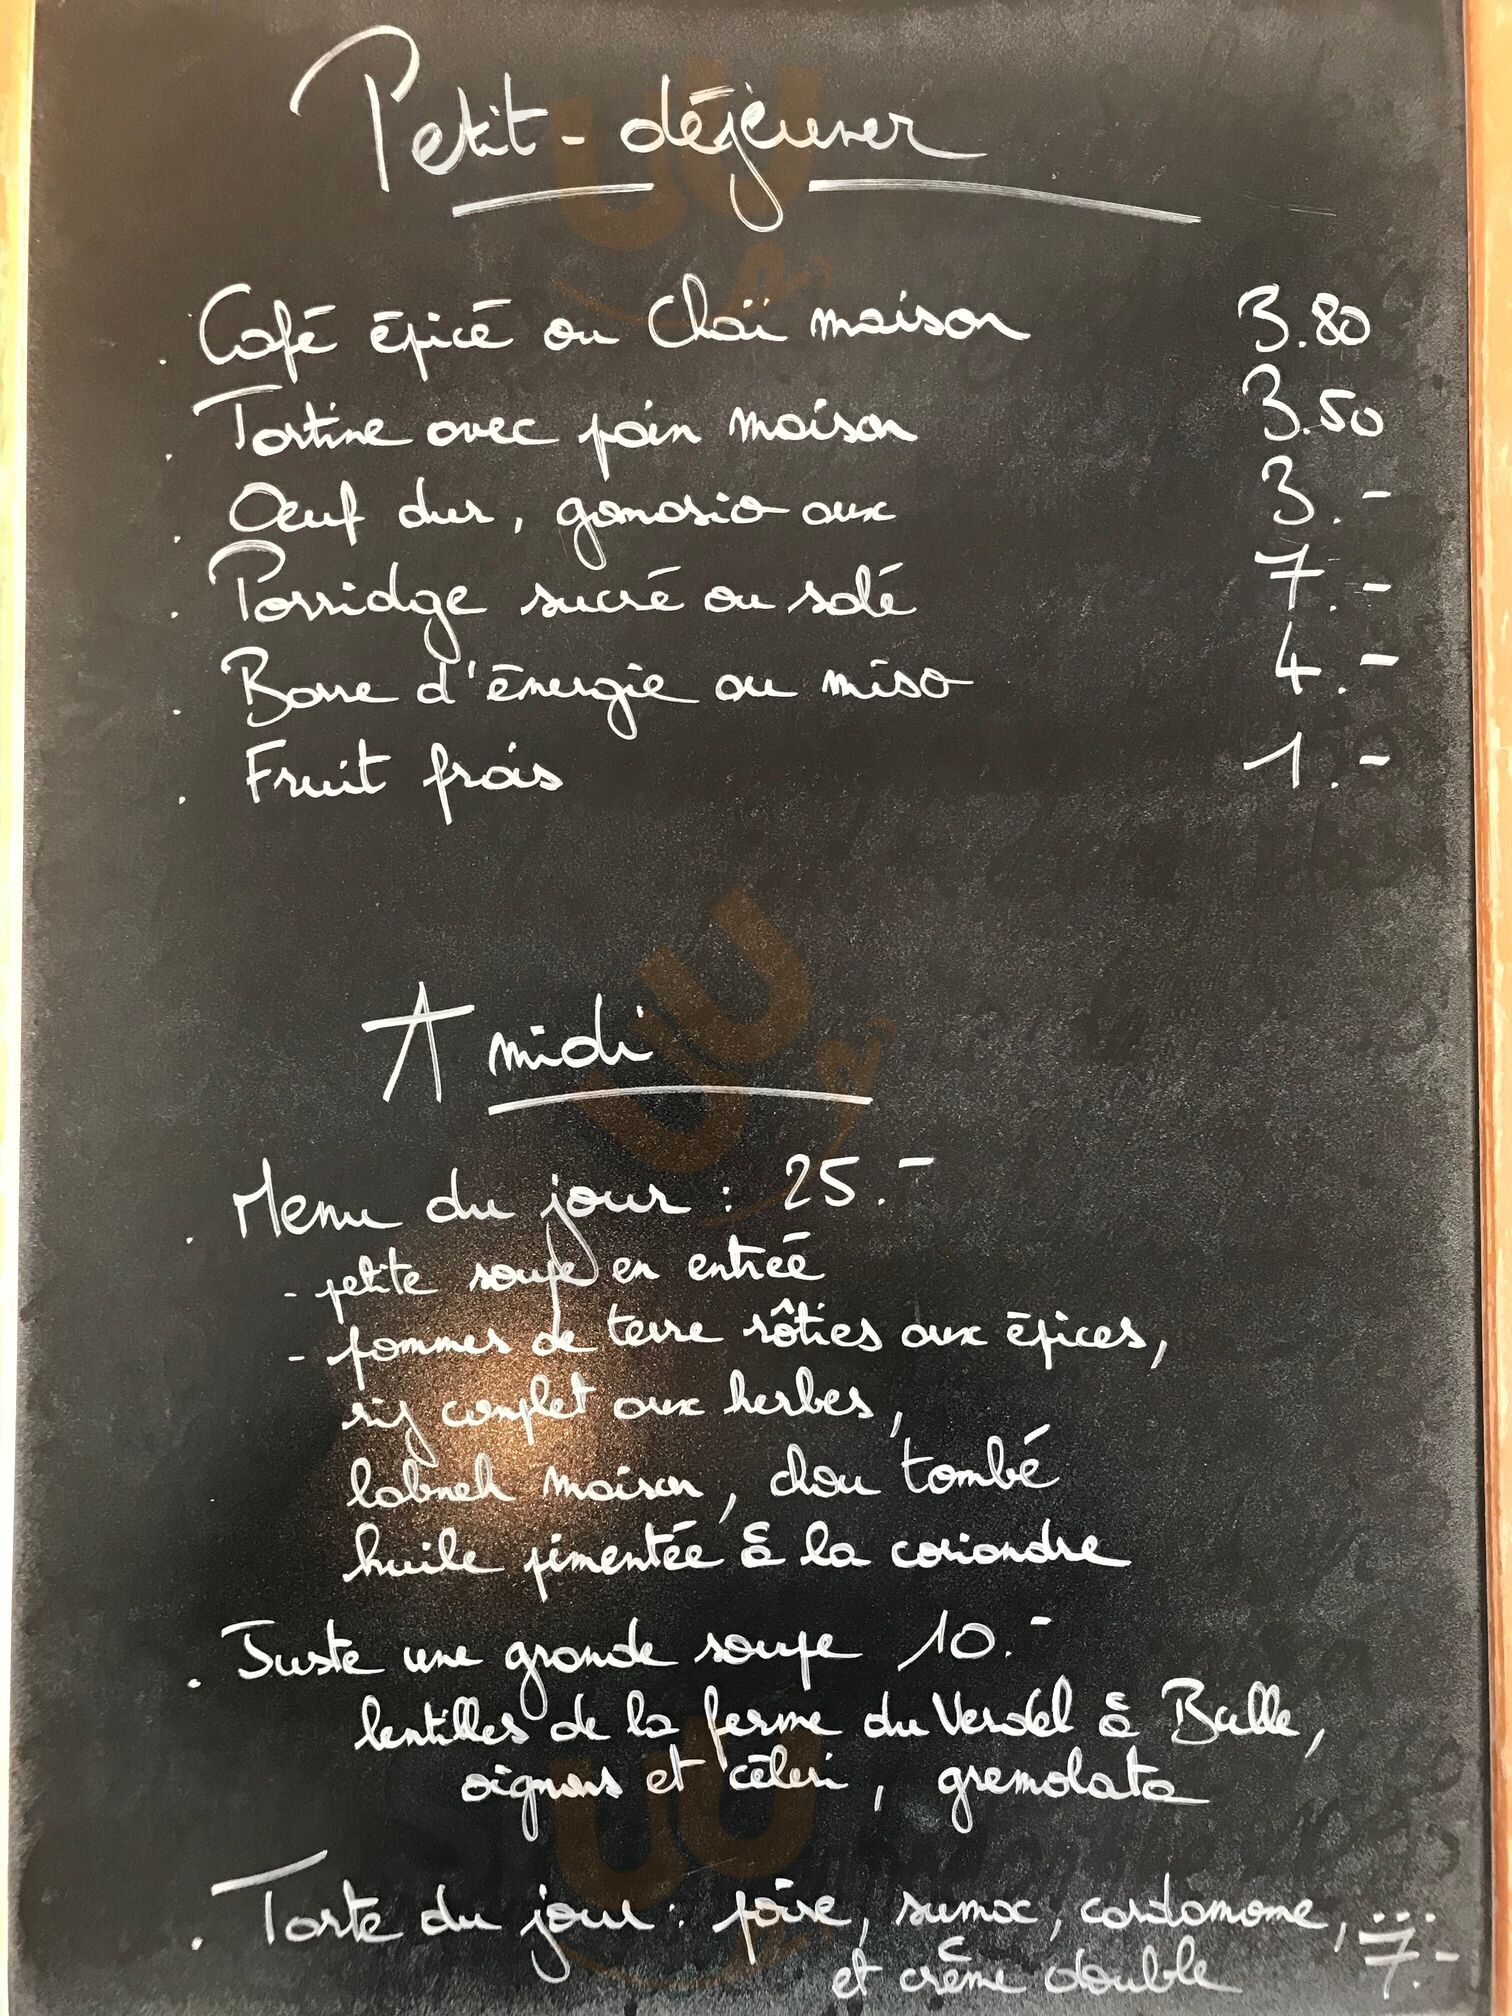 Petit-déjeuner
. Café épicé ou Chaï maison 3.80
. Tartine avec pain maison 3.50
. Oeuf dur, gomasio aux 3.-
. Porridge sucré ou salé 7.-
. Barre d'énergie ou miso 4.-
. Fruit frais 1.-
A midi
. Menu du jour : 25.-
- petite soupe en entrée
- pommes de terre rôties aux épices,
riz complet aux herbes,
labneh maison, chou tombé
huile pimentée & à la coriandre
. Juste une grande soupe 10.-
lentilles de la ferme du Verdel à Bulle,
oignons et céleri, gremolata
. Tarte du jour : poire, sumac, cardamome, ...
et crème double 7.-